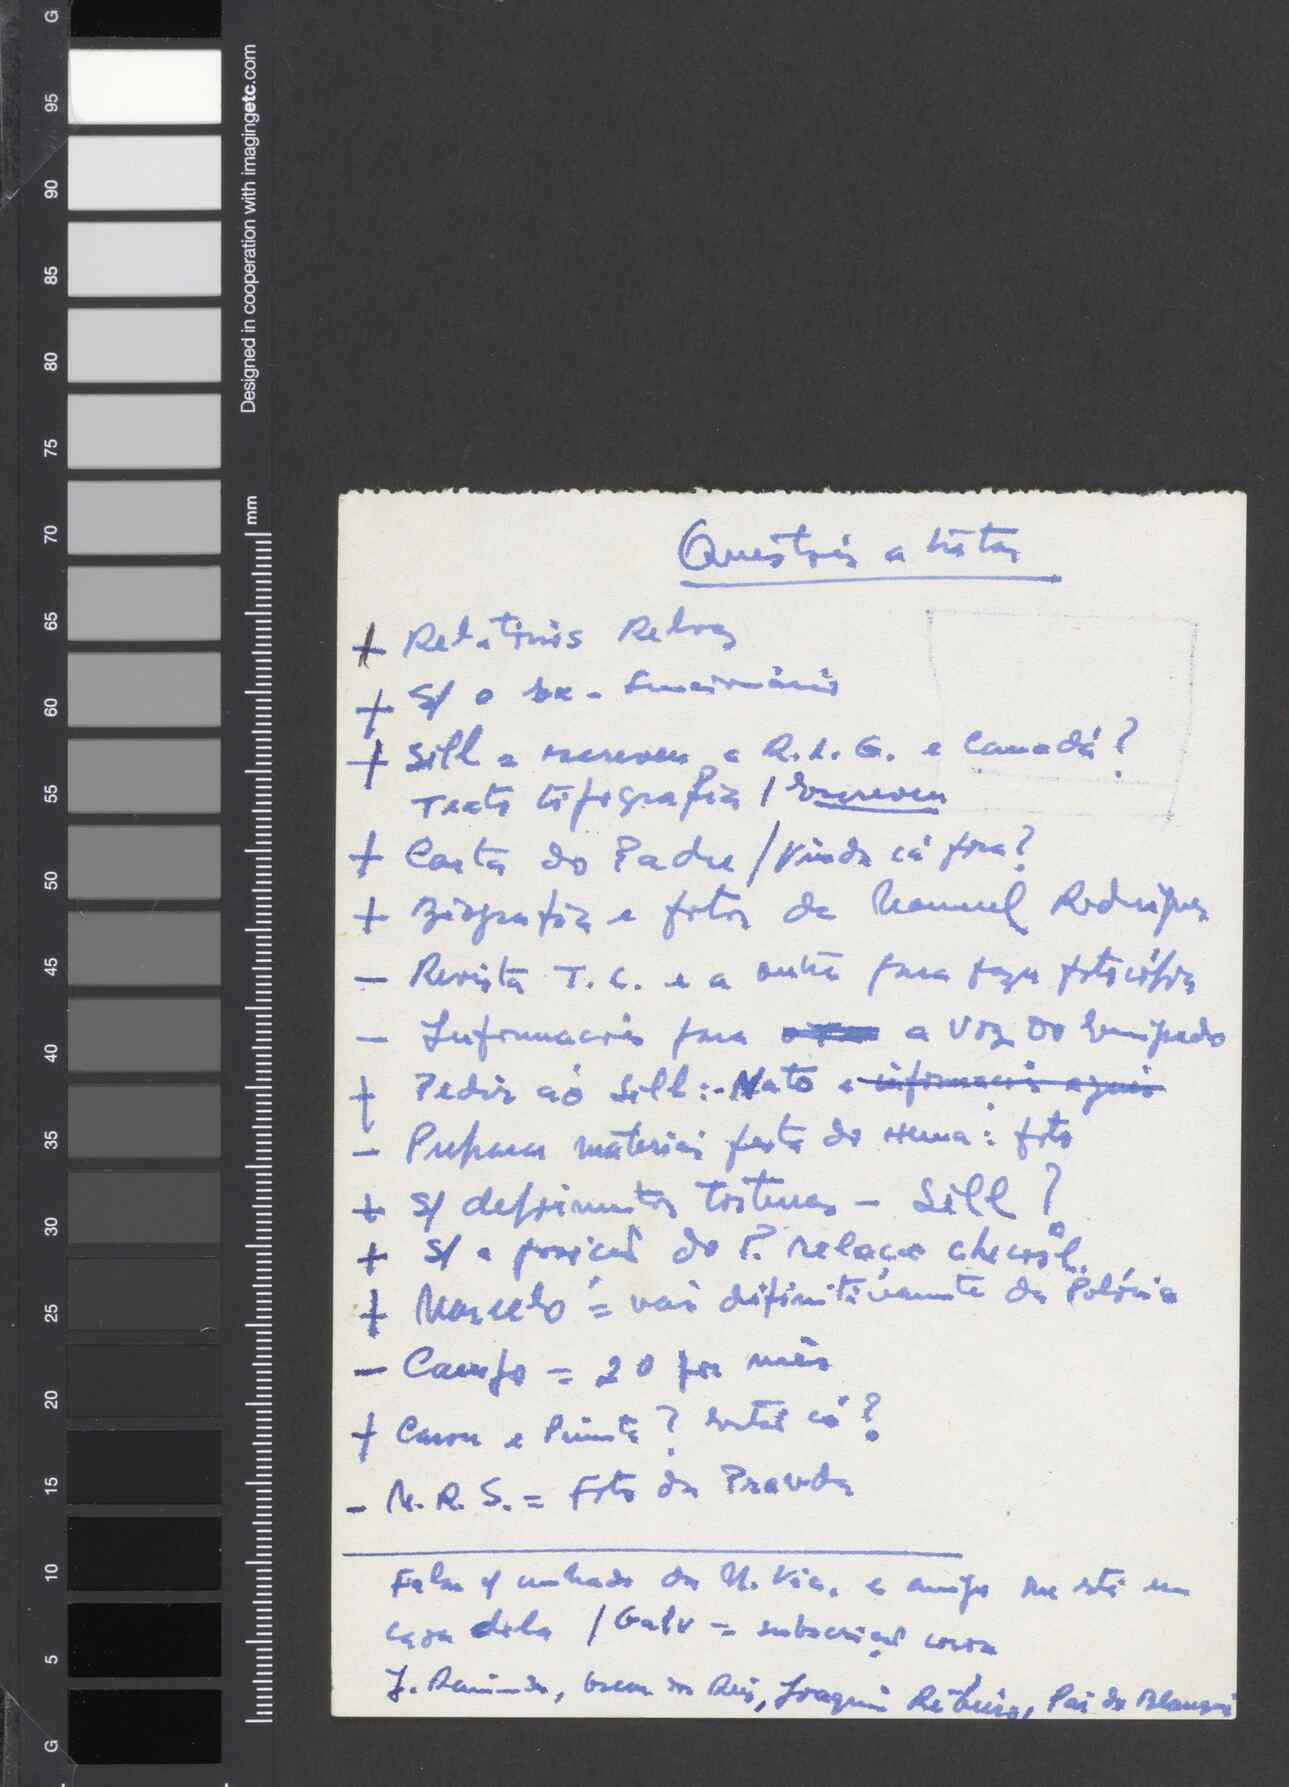 G
95
90
85
80
75
70
65
60
55
50
45
40
35
30
25
20
15
10
5
G
Designed in cooperation with imagingetc.com
mm
Questões a tratar
+ Relatórios
+ S/ o ex-funcionário
+ Sill a escrever a R. L. G. e Canadá?
Texto tipografia / Escrever
+ Carta do Padre / Vinda cá fora?
+ Biografia e fotos de Manuel Rodrigues
- Revista T. L. e a outra para fazer fotocópia
- Informações para a Voz do Emigrado
+ Pedir aó Sill: - Nato e informação
- Preparar material festa do : foto
+ S/ depoimentos torturas - Sill?
+ S/ a posição do P. relação
+ Marcelo = vai difinitivamente da Polónia
- Campo = 20 por mês
+ e ? cá?
- M. R. S. = Foto da Pravda
Falar c/ cunhado da M. e amigo que está em
casa dela / Galv = subscrição
J. Raimundo, dos Reis, Joaquim Ribeiro, Pai do